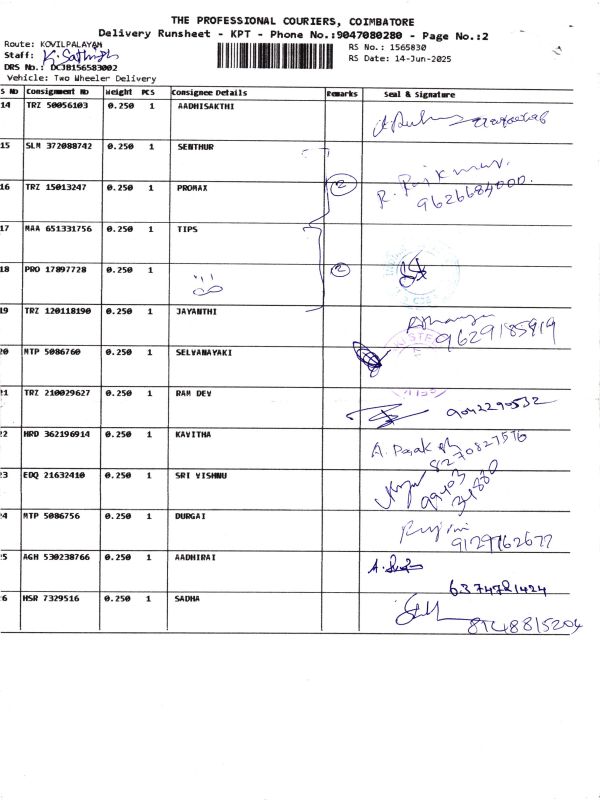 THE PROFESSIONAL COURIERS, COIMBATORE
Delivery Runsheet - KPT - Phone No.:9047080280 - Page No.:2
Route: KOVILPALAYAM
RS No.: 1565830
Staff:
RS Date: 14-Jun-2025
DRS No.: DCJB156583002
Vehicle: Two Wheeler Delivery
S No Consignment No Weight PCS Consignee Details Remarks Seal & Signature
14 TRZ 50056103 0.250 1 AADHISAKTHI
15 SLM 372088742 0.250 1 SENTHUR
16 TRZ 15013247 0.250 1 PROMAX 2 R. Raj Kumar.
9626684000.
17 MAA 651331756 0.250 1 TIPS
18 PRO 17897728 0.250 1 2
19 TRZ 120118190 0.250 1 JAYANTHI
9629185919
20 MTP 5086760 0.250 1 SELVANAYAKI
21 TRZ 210029627 0.250 1 RAM DEV 9042290532
22 HRD 362196914 0.250 1 KAVITHA
8270827576
23 EDQ 21632410 0.250 1 SRI VISHNU
99403
31880
24 MTP 5086756 0.250 1 DURGAI
9129762677
25 AGH 530238766 0.250 1 AADHIRAI
6374781424
26 HSR 7329516 0.250 1 SADHA
8148815204